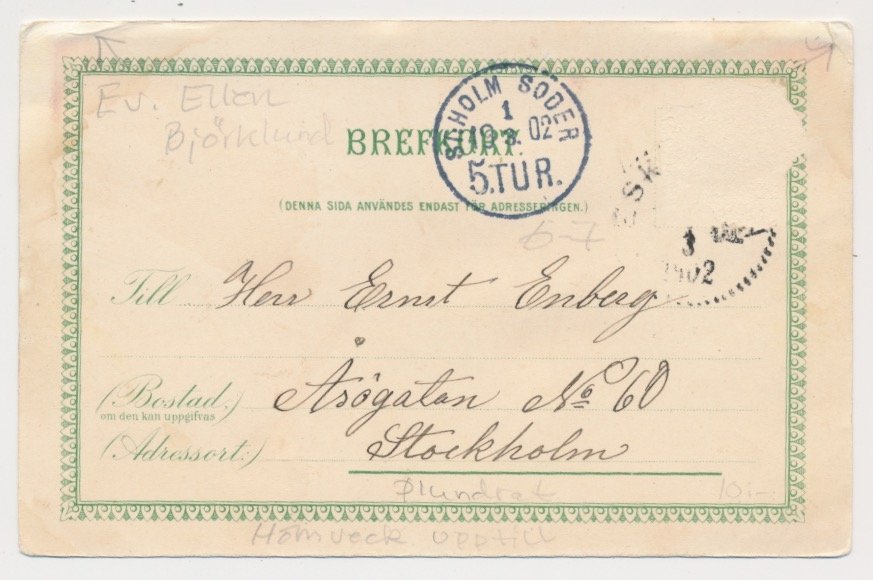 Ev. Ellen
Björklund
BREFKORT.
STHOLM SÖDER
1
19 3. 02
5.TUR.
(DENNA SIDA ANVÄNDES ENDAST FÖR ADRESSERINGEN.)
6-7
ESK
3
1902
Till Herr Ernst Enberg
(Bostad:) Åsögatan No 60
om den kan uppgifvas
(Adressort:) Stockholm
Plundrat 10:-
Hörnveck upptill